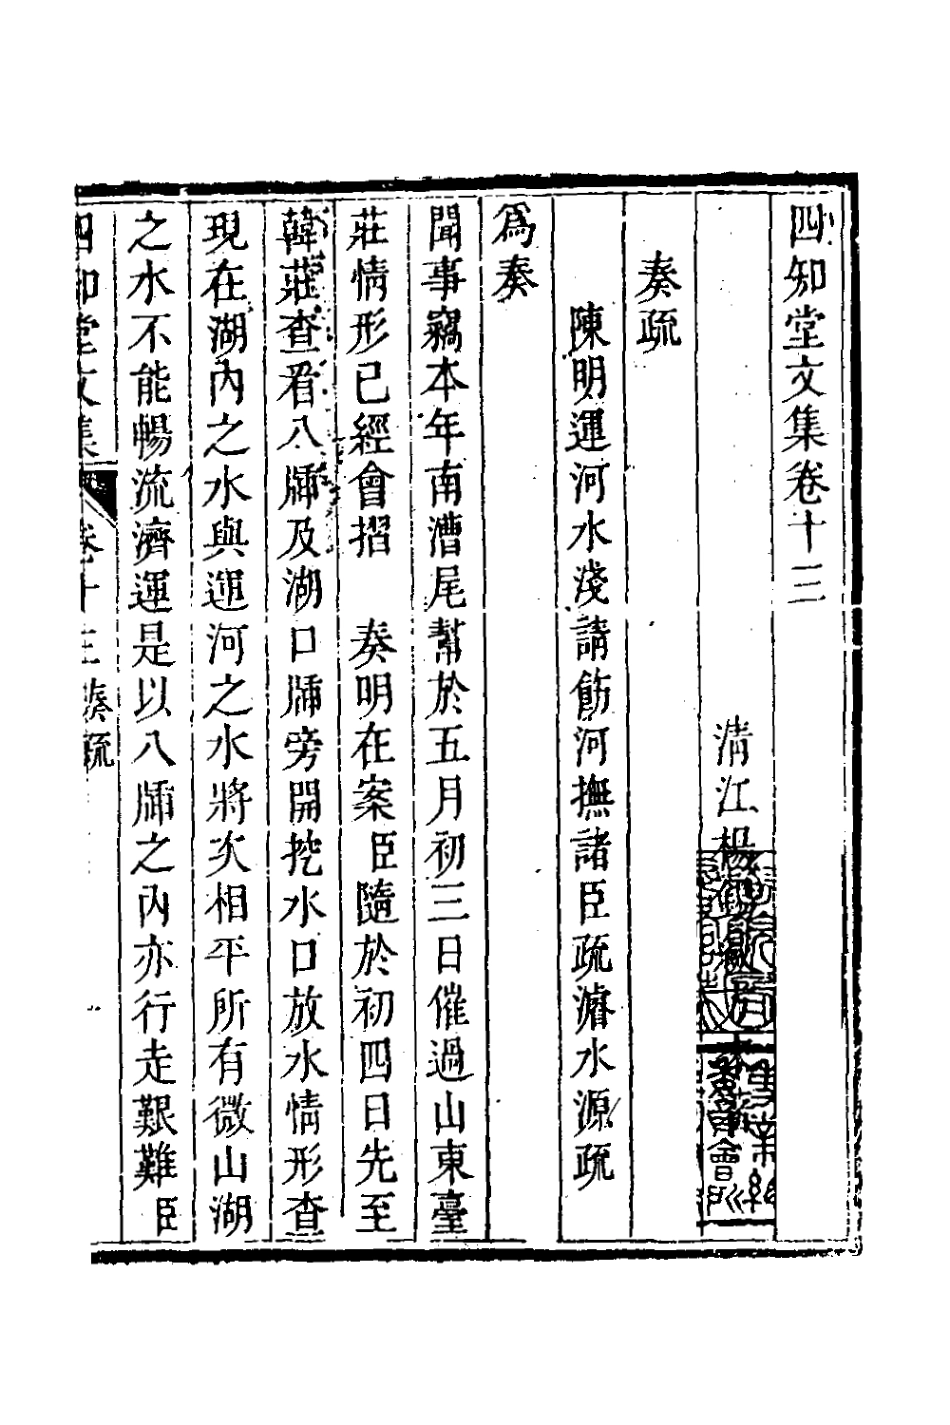 四知堂文集卷十三
清江楊錫紱
奏疏
陳明運河水淺請飭河撫諸臣疏濬水源疏
為奏
聞事竊本年南漕尾幫於五月初三日催過山東臺
莊情形已經會摺　奏明在案臣隨於初四日先至
韓莊查看八牐及湖口牐旁開挖水口放水情形查
現在湖內之水與運河之水將次相平所有微山湖
之水不能暢流濟運是以八牐之內亦行走艱難臣
四知堂文集　卷十三奏疏